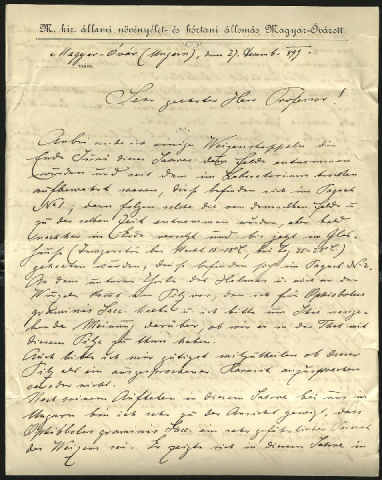 M. kir. állami növényélet- és kórtani állomás Magyar-Óvárott.
Magyar-Óvár (Ungarn), den 27. 189
szám.
Sehr geehrter Herr Professor!
Anbei sende ich einige Weizenstoppeln die
Ende Juni dieses Jahres dem Felde entnommen
wurden und seit dem im Laboratorium trocken
aufbewahrt waren, diese befinden sich im Paquet
No 1; dann folgen solche die von demselben Felde u.
zu derselben Zeit entnommen wurden, aber bald
nachher in Erde versetzt und bis jetzt im Glas-
hause (Temperatur bei Nacht 15-18°C, bei Tag 25-28°C)
gehalten wurden; diese befinden sich im Paquet No 2.
An dem unteren Theile des Halmes u. an den
Wurzeln kommt ein Pilz vor, den ich für Ophiobolus
graminis Sacc. halte und ich bitte um Ihre
Meinung darüber, ob wir es in der That mit
diesem Pilze zu thun haben.
Auch bitte ich mir gütigst mitzutheilen ob dieser
Pilz als ein ausgesprochener Parasit anzusprechen
sei oder nicht.
Nach seinem Auftreten in diesem Jahre bei uns in
Ungarn bin ich sehr zu der Ansicht geneigt, dass
Ophiobolus graminis Sacc. ein sehr gefährlicher Parasit
des Weizens sei. Er zeigte sich in diesem Jahre in